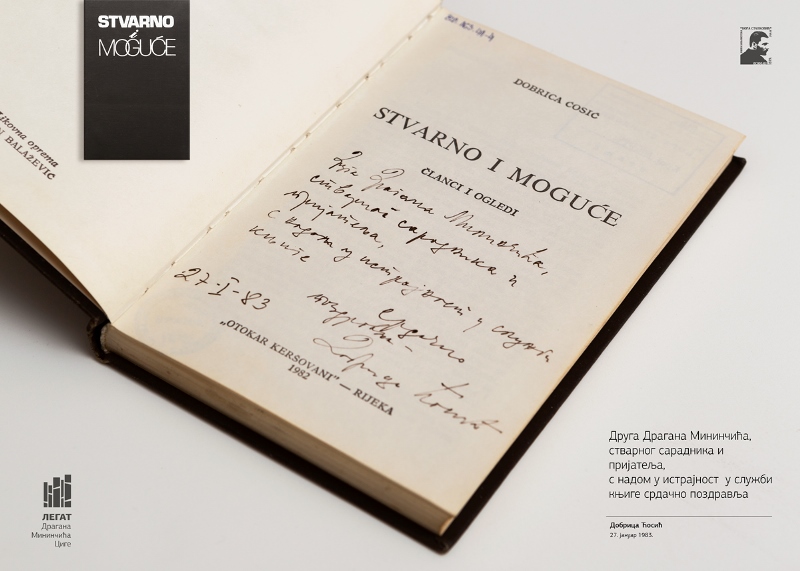 STVARNO
i
MOGUĆE
Likovna oprema
N BALAŽEVIĆ
DOBRICA ĆOSIĆ
STVARNO I MOGUĆE
ČLANCI I OGLEDI
Друга Драгана Мининчића,
стварног сарадника и
пријатеља,
с надом у истрајност у служби
књиге
срдачно
поздравља
Добрица Ћосић
27-I-83
„OTOKAR KERŠOVANI" — RIJEKA
1982
ЛЕГАТ
Драгана
Мининчића
Циге
Друга Драгана Мининчића,
стварног сарадника и
пријатеља,
с надом у истрајност у служби
књиге срдачно поздравља
Добрица Ћосић
27. јануар 1983.